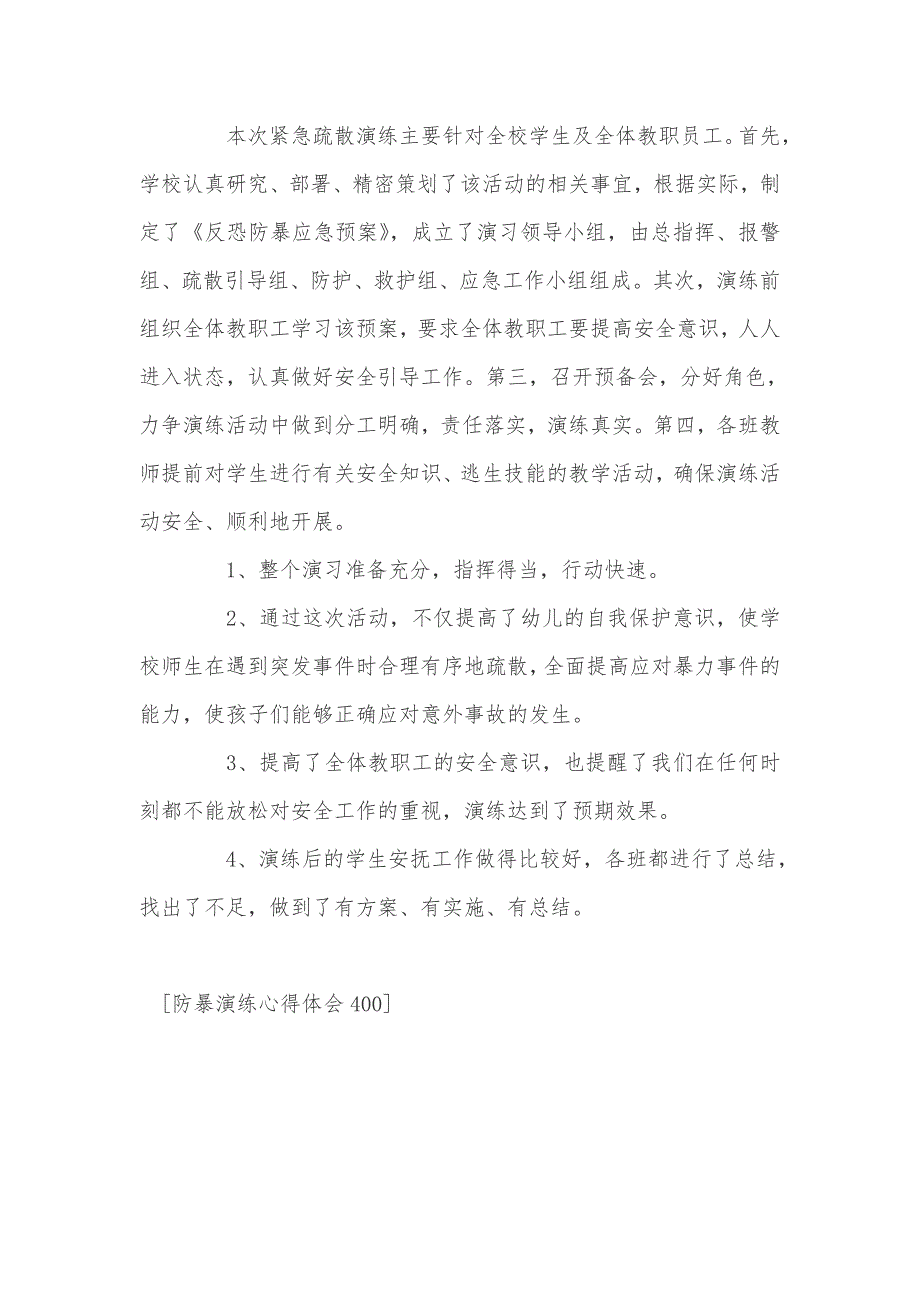 本次紧急疏散演练主要针对全校学生及全体教职员工。首先，
学校认真研究、部署、精密策划了该活动的相关事宜，根据实际，制
定了《反恐防暴应急预案》，成立了演习领导小组，由总指挥、报警
组、疏散引导组、防护、救护组、应急工作小组组成。其次，演练前
组织全体教职工学习该预案，要求全体教职工要提高安全意识，人人
进入状态，认真做好安全引导工作。第三，召开预备会，分好角色，
力争演练活动中做到分工明确，责任落实，演练真实。第四，各班教
师提前对学生进行有关安全知识、逃生技能的教学活动，确保演练活
动安全、顺利地开展。
1、整个演习准备充分，指挥得当，行动快速。
2、通过这次活动，不仅提高了幼儿的自我保护意识，使学
校师生在遇到突发事件时合理有序地疏散，全面提高应对暴力事件的
能力，使孩子们能够正确应对意外事故的发生。
3、提高了全体教职工的安全意识，也提醒了我们在任何时
刻都不能放松对安全工作的重视，演练达到了预期效果。
4、演练后的学生安抚工作做得比较好，各班都进行了总结，
找出了不足，做到了有方案、有实施、有总结。
[防暴演练心得体会 400]